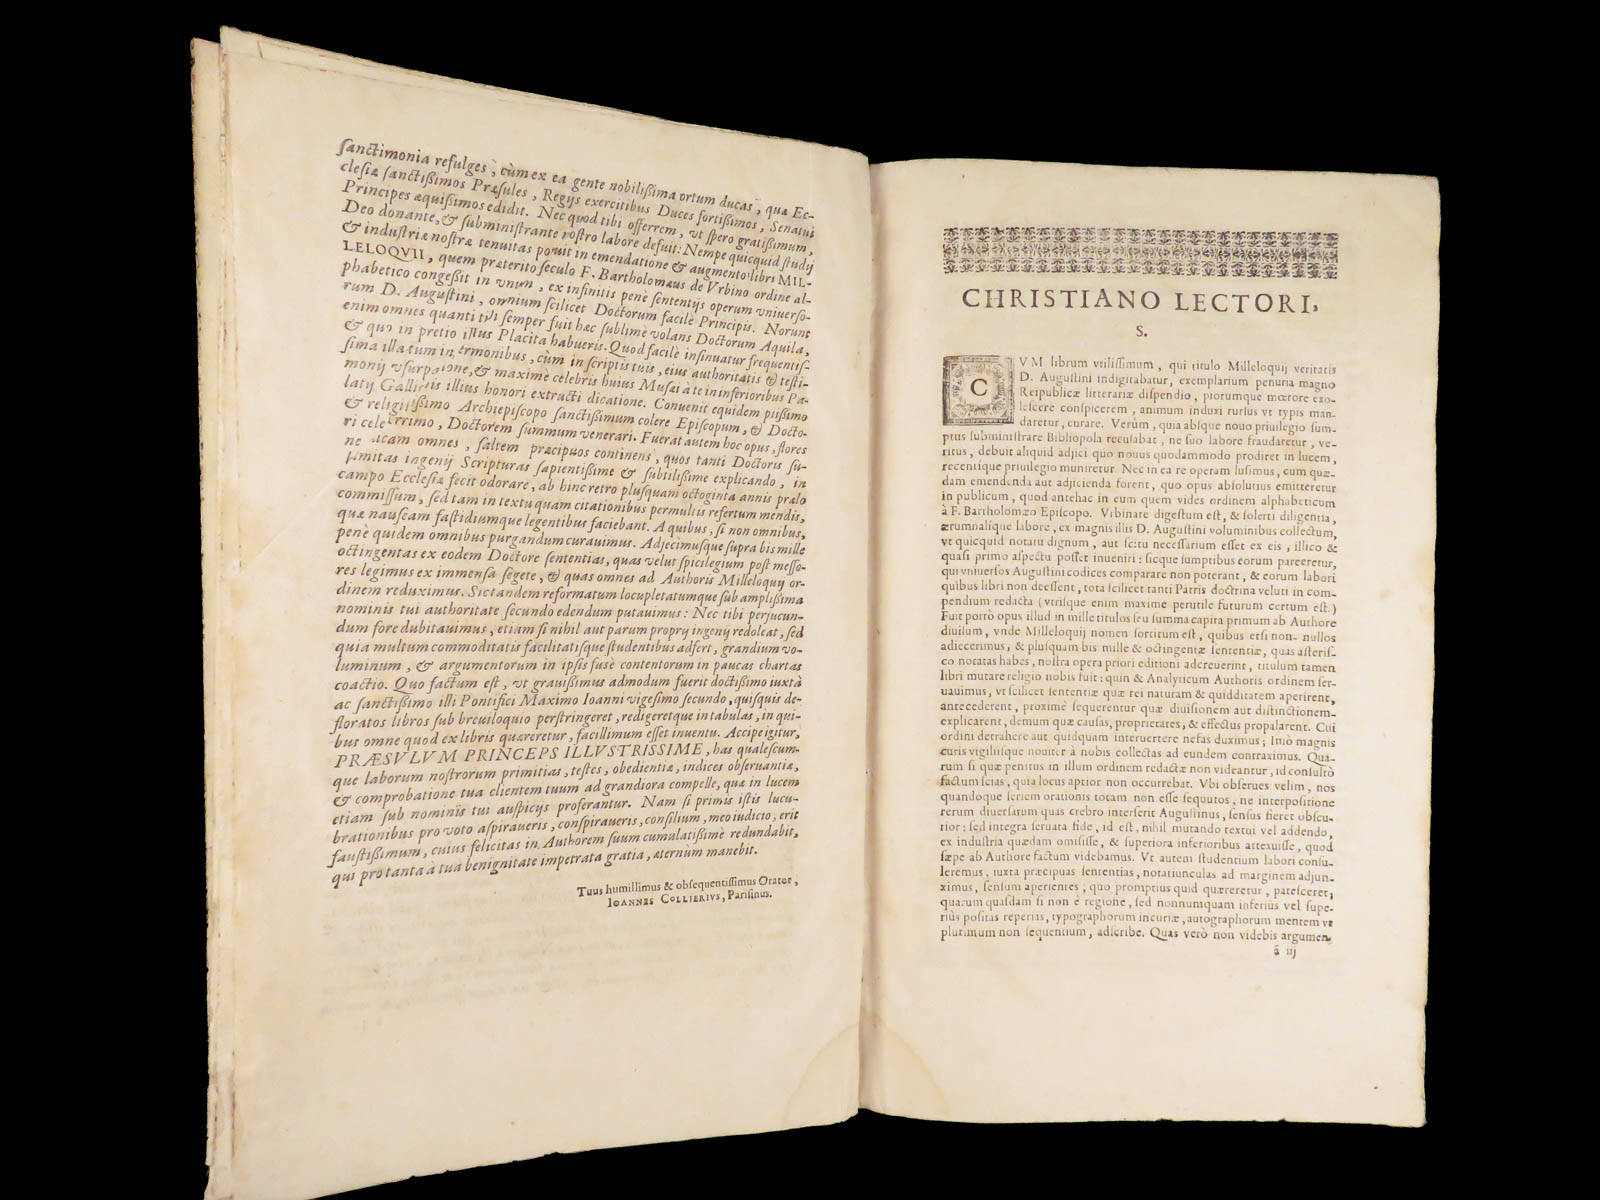 sanctimonia refulges, cùm ex ea gente nobilissima ortum ducas, quæ Ec-
clesiæ sanctißimos Præsules, Regijs exercitibus Duces fortißimos, Senatui
Principes æquißimos edidit. Nec quod tibi offerrem, vt spero gratissimum,
Deo donante, & subministrante nostro labore defuit: Nempe quicquid studij
& industriæ nostræ tenuitas potuit in emendatione & augmento libri MIL-
LELOQVII, quem præterito seculo F. Bartholomæus de Vrbino ordine al-
phabetico congeßit in vnum, ex infinitis penè sententijs operum vniuerso-
rum D. Augustini, omnium scilicet Doctorum facilè Principis. Norunt
enim omnes quanti tibi semper fuit hæc sublimè volans Doctorum Aquila,
& quo in pretio illius Placita habueris. Quod facilè insinuatur frequentis-
sima illa tum in sermonibus, cùm in scriptis tuis, eius authoritatis & testi-
monij vsurpatione, & maximè celebris huius Musæi à te in inferioribus Pa-
latij Gallicis illius honori extructi dicatione. Conuenit equidem piißimo
& religisissimo Archiepiscopo sanctissimum colere Episcopum, & Docto-
ri celeberrimo, Doctorem summum venerari. Fuerat autem hoc opus, flores
ne dicam omnes, saltem præcipuos continens, quos tanti Doctoris su-
blimitas ingenij Scripturas sapientissime & subtilissime explicando, in
campo Ecclesiæ fecit odorare, ab hinc retro plusquam octoginta annis prælo
commissum, sed tam in textu quam citationibus permultis refertum mendis,
quæ nauseam fastidiumque legentibus faciebant. A quibus, si non omnibus,
penè quidem omnibus purgandum curauimus. Adjecimusque supra bis mille
octingentas ex eodem Doctore sententias, quas velut spicilegium post messo-
res legimus ex immensa segete, & quas omnes ad Authoris Milleloquij or-
dinem reduximus. Sic tandem reformatum locupletatumque sub amplißima
nominis tui authoritate secundo edendum putauimus: Nec tibi perjucun-
dum fore dubitauimus, etiam si nihil aut parum proprij ingenij redoleat, sed
quia multum commoditatis facilitatisque studentibus adfert, grandium vo-
luminum, & argumentorum in ipsis fusè contentorum in paucas chartas
coactio. Quo factum est, vt grauißimus admodum fuerit doctißimo iuxtà
ac sanctißimo illi Pontifici Maximo Ioanni vigesimo secundo, quisquis de-
floratos libros sub breuiloquio perstringeret, redigeretque in tabulas, in qui-
bus omne quod ex libris quæreretur, facillimum esset inuentu. Accipe igitur,
PRÆSVLVM PRINCEPS ILLVSTRISSIME, has qualescum-
que laborum nostrorum primitias, testes, obedientiæ, indices obseruantiæ,
& comprobatione tua clientem tuum ad grandiora compelle, quæ in lucem
etiam sub nominis tui auspicijs proferantur. Nam si primis istis lucu-
brationibus pro voto aspiraueris, conspiraueris, consilium, meo iudicio, erit
faustißimum, cuius felicitas in Authorem suum cumulatißimè redundabit,
qui pro tanta à tua benignitate impetrata gratia, æternùm manebit.
Tuus humillimus & obsequentissimus Orator,
IOANNES COLLIERIVS, Parisinus.
CHRISTIANO LECTORI,
S.
CVM librum vtilissimum, qui titulo Milleloquij veritatis
D. Augustini indigitabatur, exemplarium penuria magno
Reipublicæ litterariæ dispendio, piorumque mœrore exo-
lescere conspicerem, animum induxi rursus vt typis man-
daretur, curare. Verùm, quia absque nouo priuilegio sum-
ptus subministrare Bibliopola recusabat, ne suo labore fraudaretur, ve-
ritus, debuit aliquid adjici quo nouus quodammodo prodiret in lucem,
recentique priuilegio muniretur. Nec in ea re operam lusimus, cum quæ-
dam emendenda aut adjicienda forent, quo opus absolutius emitteretur
in publicum, quod antehac in eum quem vides ordinem alphabeticum
à F. Bartholomæo Episcopo. Vrbinate digestum est, & solerti diligentia,
ærumnalique labore, ex magnis illis D. Augustini voluminibus collectum,
vt quicquid notatu dignum, aut scitu necessarium esset ex eis, illico &
quasi primo aspectu posset inueniri: sicque sumptibus eorum parceretur,
qui vniuersos Augustini codices comparare non poterant, & eorum labori
quibus libri non deessent, tota scilicet tanti Patris doctrina veluti in com-
pendium redacta (vtrisque enim maxime perutile futurum certum est.)
Fuit porrò opus illud in mille titulos seu summa capita primum ab Authore
diuisum, vnde Milleloquij nomen sortitum est, quibus etsi non-nullos
adiecerimus, & plusquam bis mille & octingentæ sententiæ, quas asteris-
co notatas habes, nostra opera priori editioni adcreuerint, titulum tamen
libri mutare religio nobis fuit: quin & Analyticum Authoris ordinem ser-
uauimus, vt scilicet sententiæ quæ rei naturam & quidditatem aperirent,
antecederent, proximè sequerentur quæ diuisionem aut distinctionem-
explicarent, demum quæ causas, proprietates, & effectus propalarent. Cui
ordini detrahere aut quidquam interuertere nefas duximus; Imò magnis
curis vigiliisque nouiter à nobis collectas ad eundem contraximus. Qua-
rum si quæ penitus in illum ordinem redactæ non videantur, id consultò
factum scias, quia locus aptior non occurrebat. Vbi obserues velim, nos
quandoque seriem orationis totam non esse sequutos, ne interpositione
rerum diuersarum quas crebro interserit Augustinus, sensus fieret obscu-
rior: sed integra seruata fide, id est, nihil mutando textui vel addendo,
ex industria quædam omisisse, & superiora inferioribus attexuisse, quod
sæpe ab Authore factum videbamus. Vt autem studentium labori consu-
leremus, iuxta præcipuas sententias, notatiunculas ad marginem adjun-
ximus, sensum aperientes, quo promptius quid quæreretur, patesceret,
quarum quasdam si non è regione, sed nonnumquam inferius vel supe-
riùs positas reperias, typographorum incuriæ, autographorum mentem vt
plurimum non sequentium, adscribe. Quas verò non videbis argumen-
ã iij